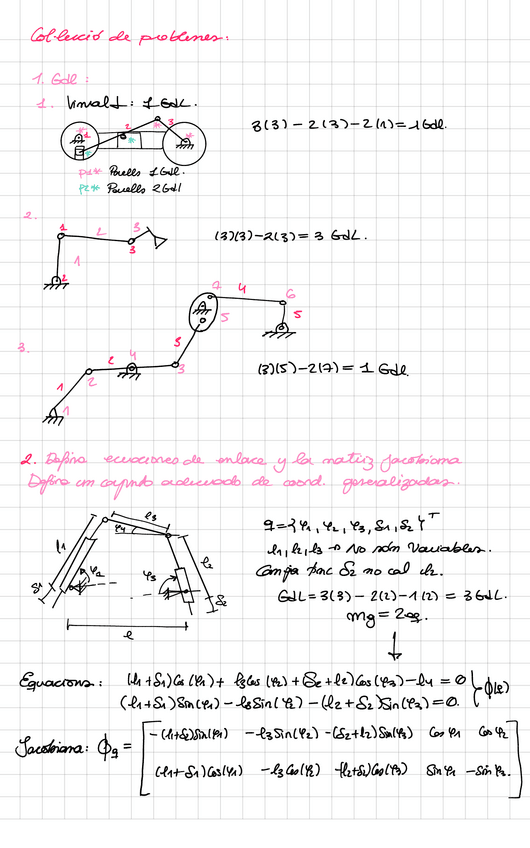 Col·lecció de problemes:
1. Gdl:
1. Vinval 1: 1 GdL.
1 2 3
3(3) - 2(3) - 2(1) = 1 Gdl.
p1* Parells 1 Gdl.
p2* Parells 2 Gdl
2.
1 2 3
3
1
2
(3)(3) - 2(3) = 3 GdL.
7 4 6
5 5
3.
5
2 4
1 2 3
1
(3)(5) - 2(7) = 1 Gdl.
2. Definir ecuaciones de enlace y la matriz Jacobiana
Definir un conjunto adecuado de coord. generalizadas.
l3
φ2
l1
l2
φ3
S1
S2
l
q = {φ1, φ2, φ3, S1, S2}ᵀ
l1, l2, l3 → No són Variables.
S2 no cal l2.
GdL = 3(3) - 2(2) - 1(2) = 3 Gdl.
mg = 2eq.
Equacions: (l1+S1)Cos(φ1) + l3Cos(φ2) + (S2+l2)Cos(φ3) - l4 = 0
(l1+S1)Sin(φ1) - l3Sin(φ2) - (l2+S2)Sin(φ3) = 0.
ϕ(q)
Jacobiana: ϕq =
-(l1+S1)Sin(φ1) -l3Sin(φ2) -(S2+l2)Sin(φ3) Cos φ1 Cos φ2
(l1+S1)Cos(φ1) -l3Cos(φ2) -(l2+S2)Cos(φ3) Sin φ1 -Sin φ3.